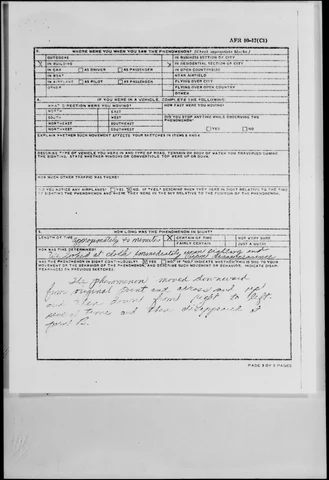 AFR 80-17(C1)
WHERE WERE YOU WHEN YOU SAW THE PHENOMENON? (Check appropriate blocks.)
OUTDOORS IN BUSINESS SECTION OF CITY
X IN BUILDING IN RESIDENTIAL SECTION OF CITY
IN CAR AS DRIVER AS PASSENGER IN OPEN COUNTRYSIDE
IN BOAT NEAR AIRFIELD
IN AIRPLANE AS PILOT AS PASSENGER FLYING OVER CITY
OTHER FLYING OVER OPEN COUNTRY
OTHER
A. IF YOU WERE IN A VEHICLE, COMPLETE THE FOLLOWING:
WHAT DIRECTION WERE YOU MOVING? HOW FAST WERE YOU MOVING?
NORTH EAST
SOUTH WEST DID YOU STOP ANYTIME WHILE OBSERVING THE PHENOMENON?
NORTHEAST SOUTHEAST
NORTHWEST SOUTHWEST YES NO
EXPLAIN WHETHER SUCH MOVEMENT AFFECTS YOUR SKETCHES IN ITEMS
DESCRIBE TYPE OF VEHICLE YOU WERE IN AND TYPE OF ROAD, TERRAIN OR BODY OF WATER YOU TRAVERSED DURING
THE SIGHTING. STATE WHETHER WINDOWS OR CONVERTIBLE TOP WERE UP OR DOWN.
HOW MUCH OTHER TRAFFIC WAS THERE?
DID YOU NOTICE ANY AIRPLANES? YES NO. IF "YES," DESCRIBE WHEN THEY WERE IN SIGHT RELATIVE TO THE TIME
OF SIGHTING THE PHENOMENON AND WHERE THEY WERE IN THE SKY RELATIVE TO THE POSITION OF THE PHENOMENON.
HOW LONG WAS THE PHENOMENON IN SIGHT?
LENGTH OF TIME minutes X CERTAIN OF TIME NOT VERY SURE
FAIRLY CERTAIN JUST A GUESS
HOW WAS TIME DETERMINED?
We looked at clock immediately upon sighting and upon disappearance
WAS THE PHENOMENON IN SIGHT CONTINUOUSLY? YES NO. IF "NO," INDICATE
MOVEMENT OR THE BEHAVIOR OF THE PHENOMENON, AND DESCRIBE SUCH MOVEMENT OR BEHAVIOR. INDICATE
PEARANCES ON PREVIOUS SKETCHES.
The phenomenon moved downward
from original point and across and up
and then down from right to left
several times and then disappeared at
point B.
PAGE 3 OF 5 PAGES